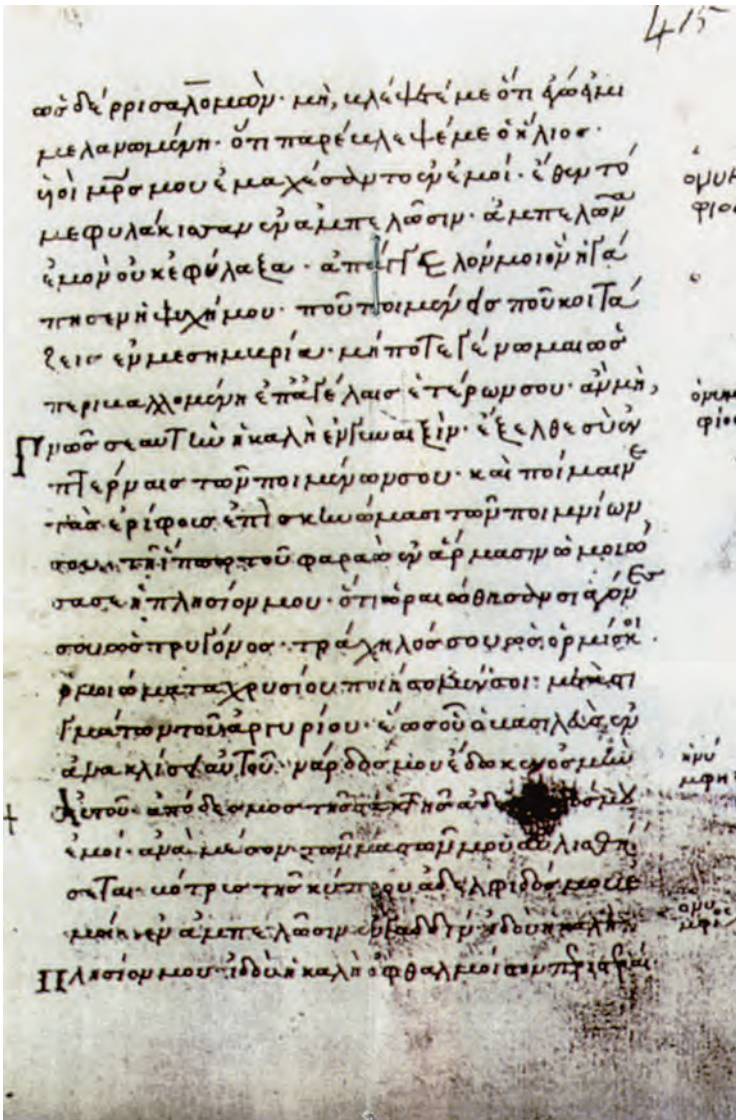 415
ὡσ δέρρισαλομὼν· μὴ, κλέψετέ με ὅτι ἐγώ εἰμι
μελανωμένη· ὅτι παρέκλεψέ με ὁ ἥλιοσ·
ὑοὶ μρ̅σ μου ἐμαχέσαντο ἐν ἐμοί· ἔθεντό
με φυλάκισσαν ἐν ἀμπελῶσιν· ἀμπελῶνα
ἐμὸν οὐκ ἐφύλαξα· ἀπάγγελόν μοι ὃν ἠγά
πησεν ἡ ψυχή μου· ποῦ ποιμένεισ ποῦ κοιτά
ζεισ ἐν μεσημβρία· μήποτε γένωμαι ὡσ
περιβαλλομένη ἐπ' ἀγέλαισ ἑτέρων σου· ἂν μὴ,
Γνῶσ σεαυτὴν ἡ καλὴ ἐν γυναιξὶν· ἔξελθε σὺ ἐν
πτέρναισ τῶν ποιμένων σου· καὶ ποίμαινε
τὰσ ἐρίφουσ ἐπὶ σκηνώμασι τῶν ποιμνίων
σου· τῆ ἵππω τοῦ φαραὼ ἐν ἅρμασιν ὡμοίω
σα σε ἡ πλησίον μου· ὅτι ὡραιώθησαν σιαγόνεσ
σου ὡσ τρυγόνοσ· τράχηλόσ σου ὡσ ὁρμίσκοι·
ὁμοιώματα χρυσίου ποιήσομέν σοι· μετὰ στι
γμάτων τοῦ ἀργυρίου· ἕωσ οὗ ὁ βασιλεὺσ ἐν
ἀνακλίσει αὐτοῦ· νάρδοσ μου ἔδωκεν ὀσμὴν
Αὐτοῦ· ἀπόδεσμοσ τῆσ στακτῆσ
ἐμοί· ἀνὰ μέσον τῶν μαστῶν μου αὐλισθή
σεται· βότρισ τῆσ κύπρου ἀδελφιδόσ μου ἐ
μοὶ· ἐν ἀμπελῶσιν ἐνγαδδίν· ἰδοὺ ἡ καλὴ ἡ
Πλησίον μου· ἰδοὺ ἡ καλὴ ὀφθαλμοί σου περιστεραί·